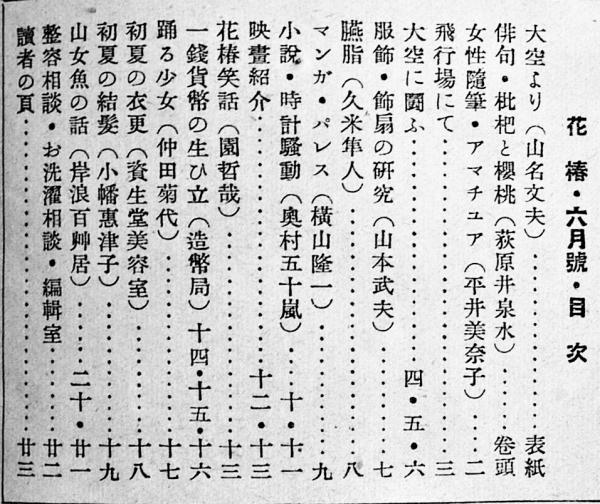 花椿・六月號・目次
大空より（山名文夫）……………表紙
俳句・枇杷と櫻桃（萩原井泉水）……巻頭
女性隨筆・アマチユア（平井美奈子）……二
飛行場にて……………三
大空に鬪ふ……………四・五・六
服飾・飾扇の硏究（山本武夫）……………七
臙脂（久米隼人）……………八
マンガ・パレス（橫山隆一）……………九
小說・時計騷動（奧村五十嵐）……………十・十一
映畫紹介……………十二・十三
花椿笑話（園哲哉）……………十三
一錢貨幣の生ひ立（造幣局）十四・十五・十六
踊る少女（仲田菊代）……………十七
初夏の衣更（資生堂美容室）……………十八
初夏の結髮（小幡惠津子）……………十九
山女魚の話（岸浪百艸居）……………二十・廿一
整容相談・お洗濯相談・編輯室　廿二
讀者の頁……………廿三